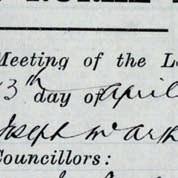 Meeting of the L
3th day of April
Joseph McArt
Councillors: